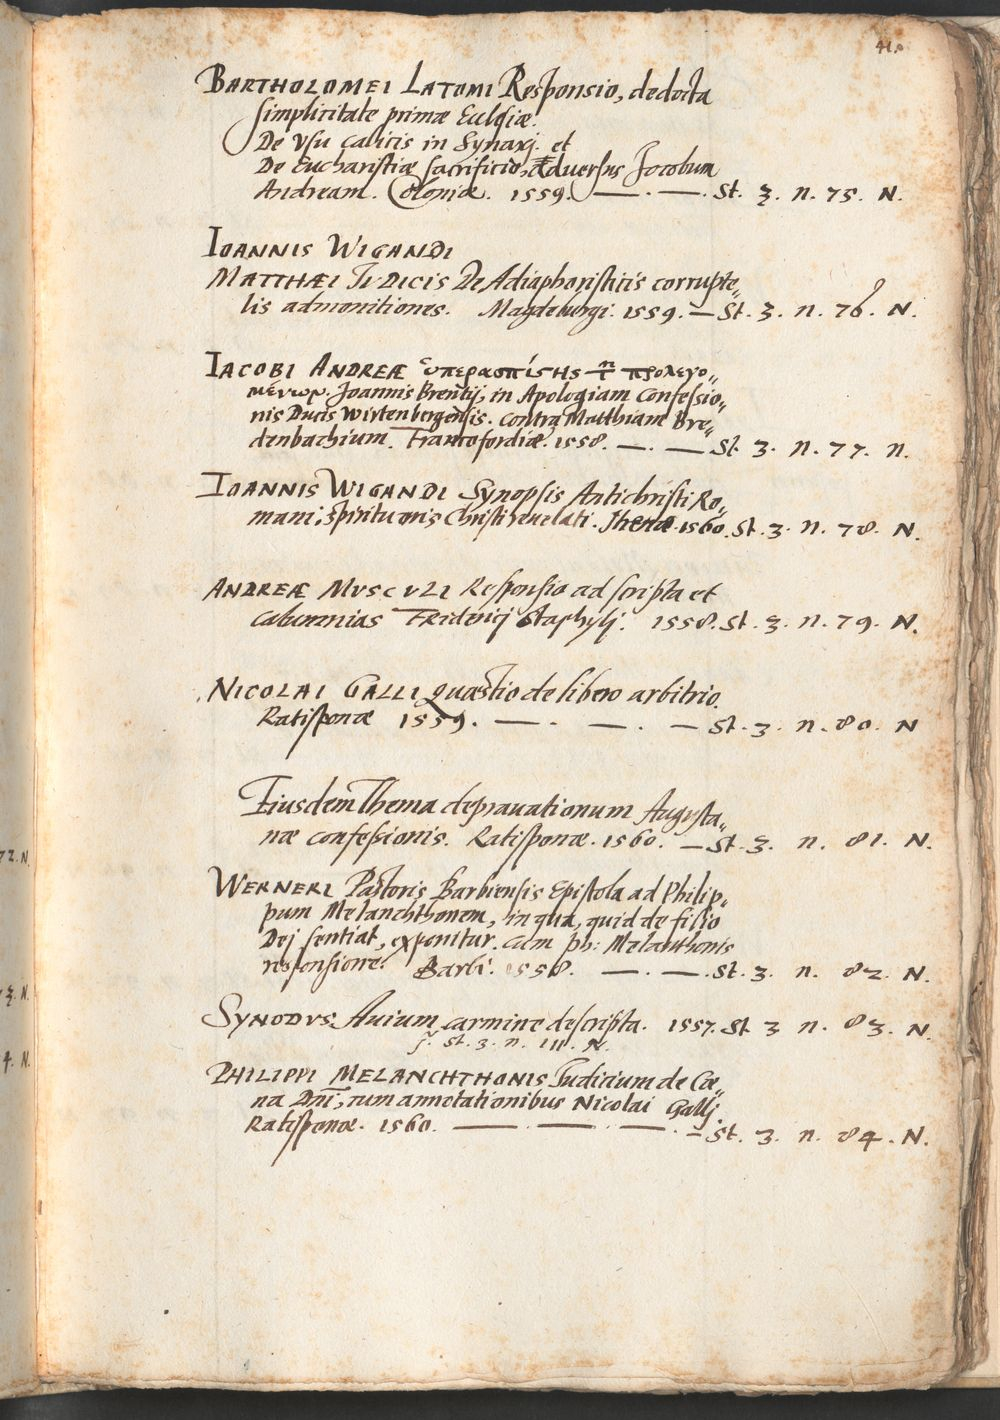 41.
BARTHOLOMEI LATOMI Responsio, de docta
simplicitate primæ Eulesiæ.
De Vsu calicis in Synaxi. et
De Eucharistiæ sacrificio, adversus Jacobum
Andream. Coloniæ. 1559. — . — . St. 3. n. 75. N.
IOANNIS WIGANDI
MATTHÆI IVDICIS De Adiaphoristicis corrupte„
lis admonitiones. Magdeburgi. 1559. — St. 3. n. 76. N.
IACOBI ANDREÆ ὑπερασπίστης τ προλεγο„
μένων. Joannis Brentij, in Apologiam Confessio„
nis Ducis Wirtenbergensis. contra Matthiam Bre„
denbachium. Francofordiæ. 1558. — . — St. 3. n. 77. n.
IOANNIS WIGANDI Synopsis Antichristi Ro„
mani, spiritu oris Christi reuelati. Jhenæ. 1560. St. 3. n. 78. N.
ANDREÆ MVSCVLI Responsio ad scripta et
calumnias Friderici Staphylj. 1558. St. 3. n. 79. N.
NICOLAI GALLI Quæstio de libero arbitrio.
Ratisponæ 1559. — . — . — St. 3. n. 80. N
Eiusdem Thema deprauationum Augusta„
næ confessionis. Ratisponæ. 1560. — St. 3. n. 81. N.
72. N.
WERNERI Pastoris Barbiensis Epistola ad Philip„
pum Melanchthonem, in qua, quid de filio
Dej sentiat, exponitur. cum ph: Melanthonis
responsione. Barbi. 1558. — . — . St. 3. n. 82. N.
3. N.
SYNODVS Auium carmine descripta. 1557. St. 3 n. 83. N.
St. 3. n. 111. N.
4. N.
PHILIPPI MELANCHTHONIS Iudicium de Cœ„
na Dnī, cum annotationibus Nicolai Gallj.
Ratisponæ. 1560. — . — . — . — St. 3. n. 84. N.